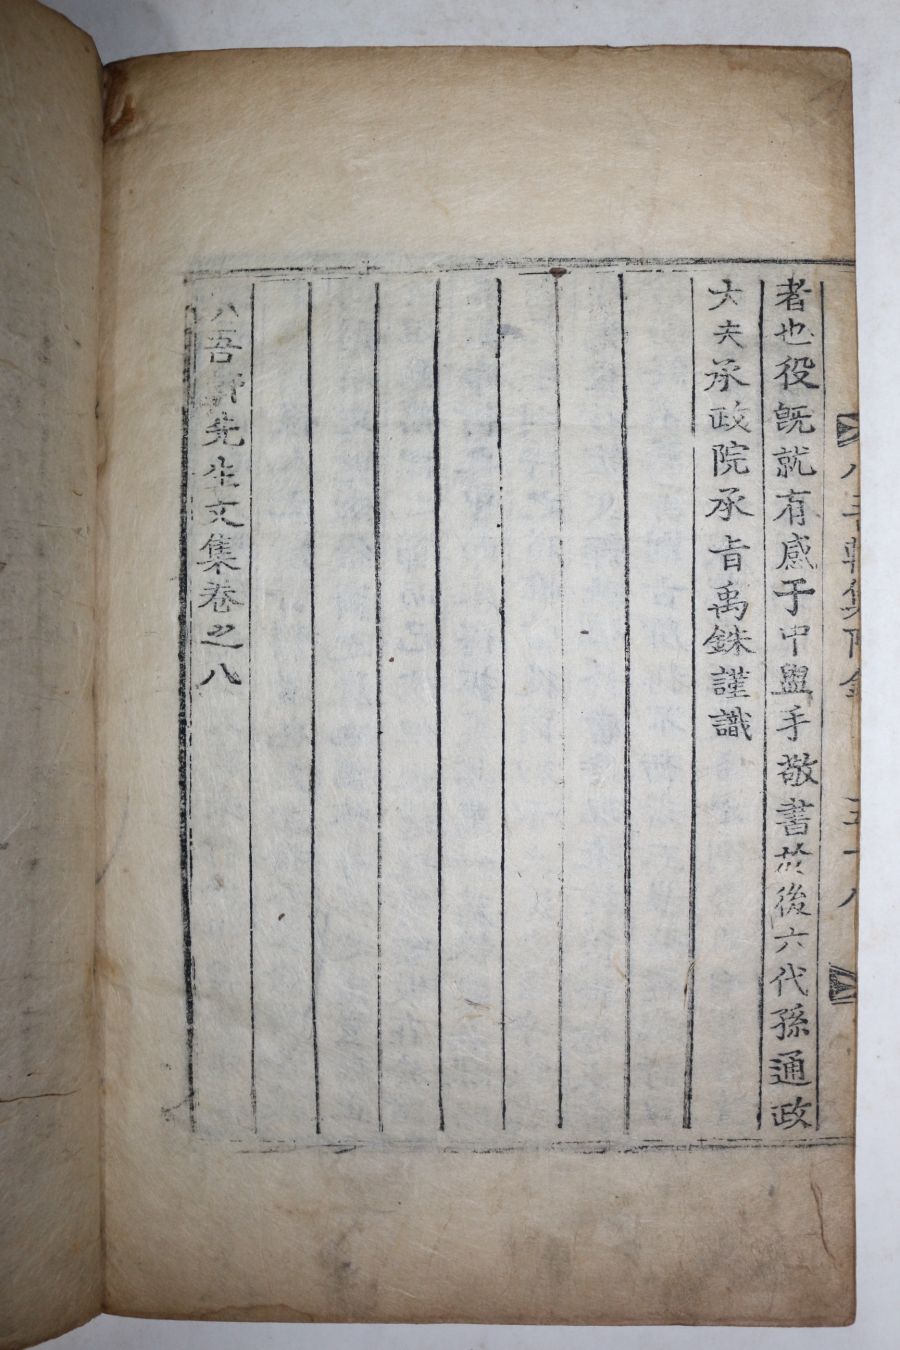 八吾軒集附錄 五十八
者也役旣就有感于中盥手敬書於後六代孫通政
大夫承政院承旨禹銖謹識
八吾軒先生文集卷之八